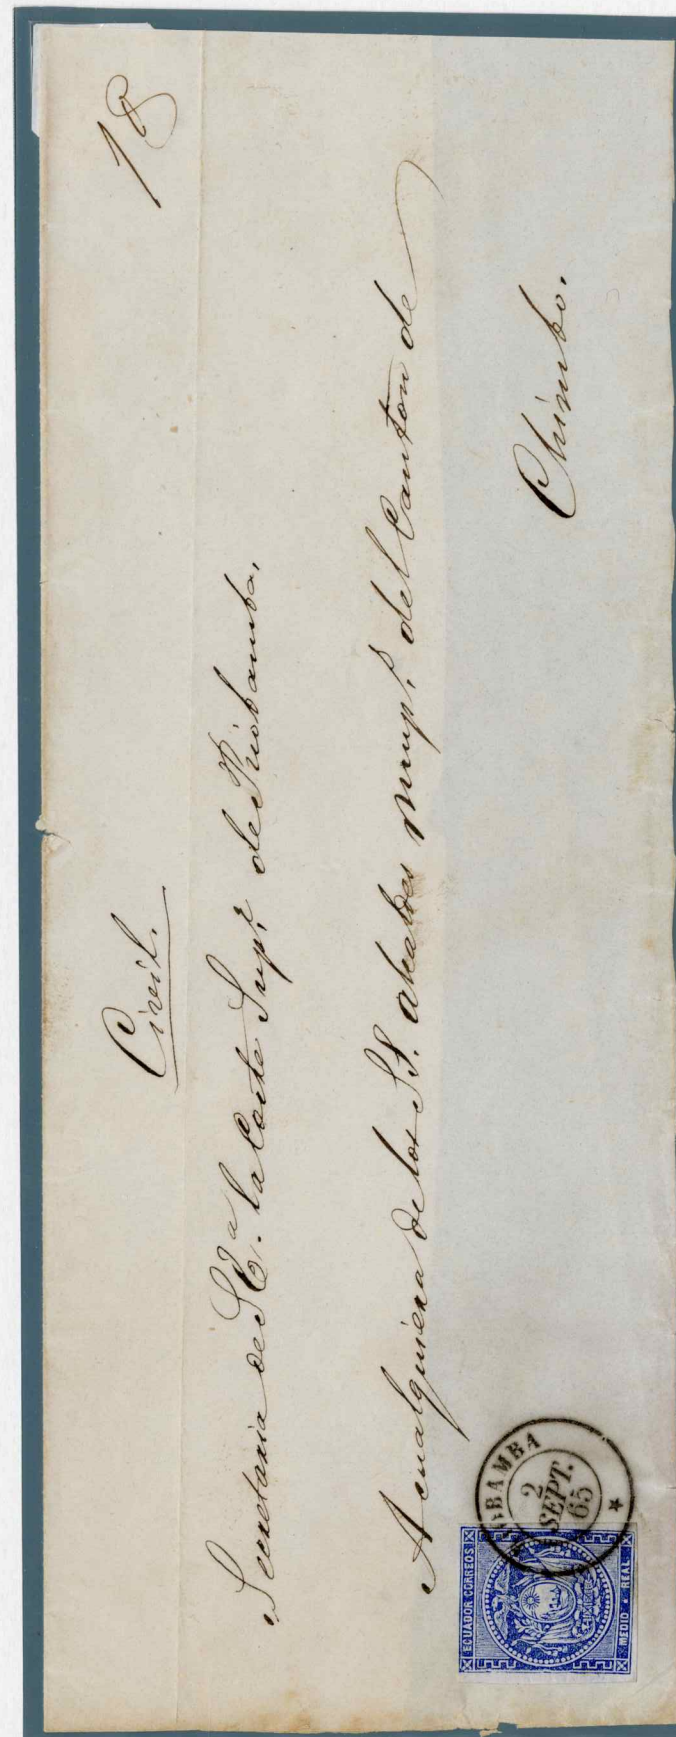 18
Civil.
Secretaria de S.E.ª la Corte Sup.r de Riobamba.
A cualquiera de los SS. alcaldes mup.s del Canton de
Chimbo.
OBAMBA
2
SEPT.
65
ECUADOR CORREOS
MEDIO REAL